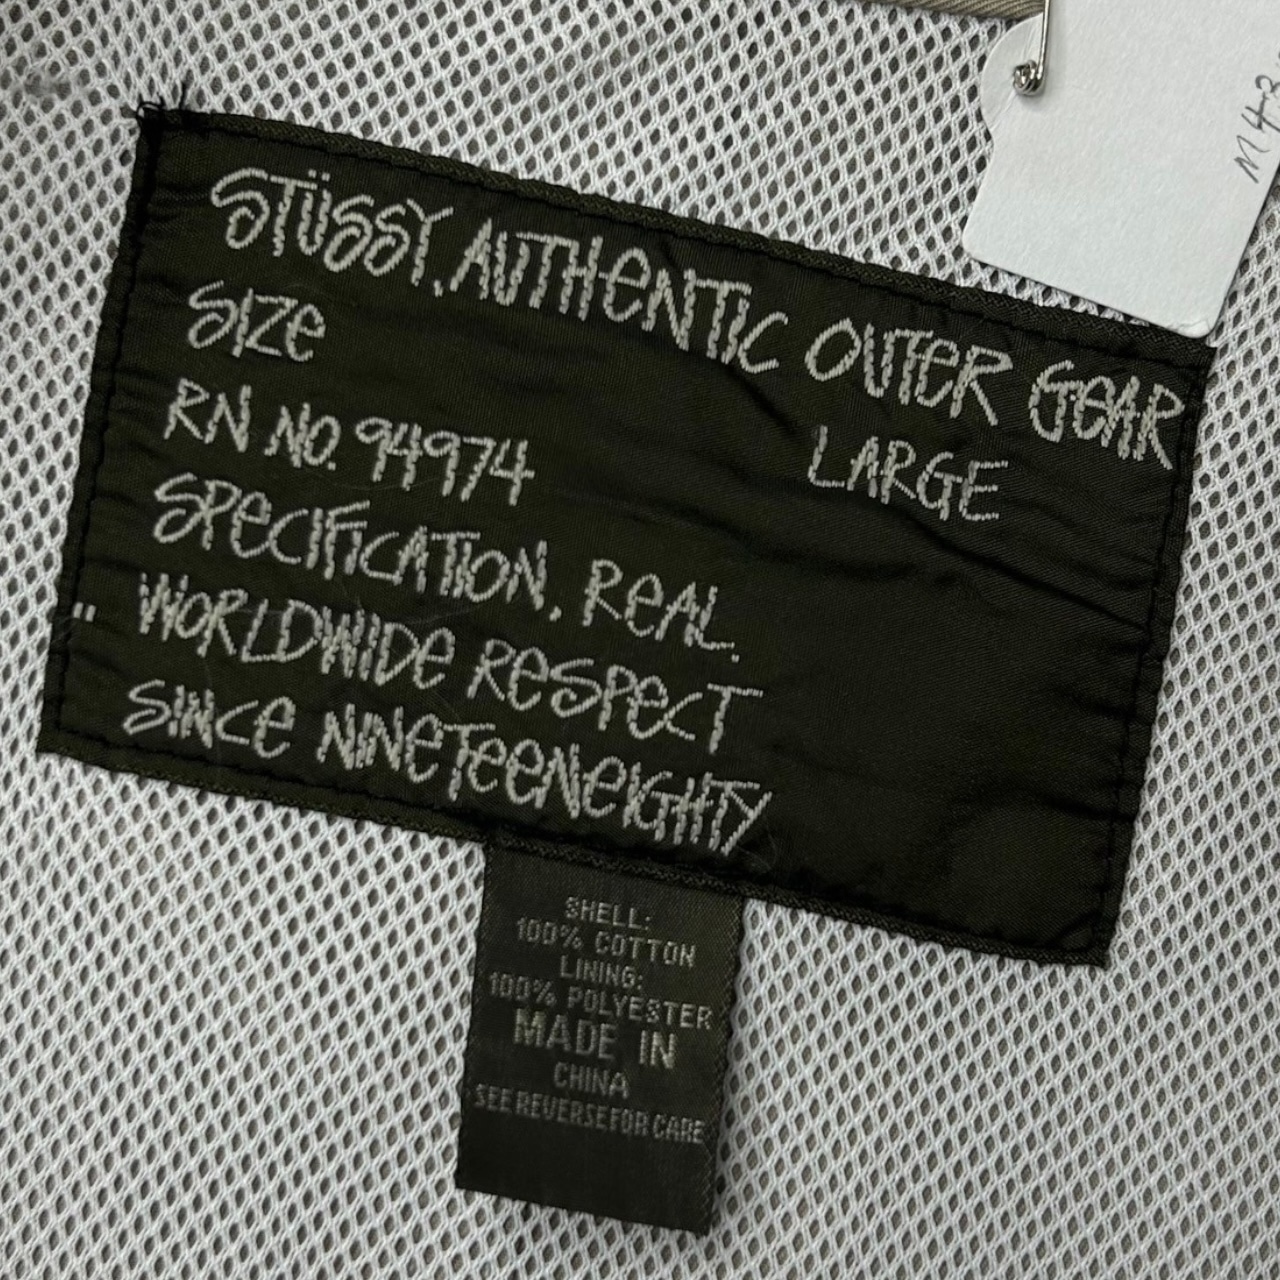 STÜSSY. AUTHENTIC OUTER GEAR
SIZE LARGE
RN NO. 94974
SPECIFICATION. REAL.
WORLDWIDE RESPECT
SINCE NINETEENEIGHTY
SHELL:
100% COTTON
LINING:
100% POLYESTER
MADE IN
CHINA
SEE REVERSE FOR CARE